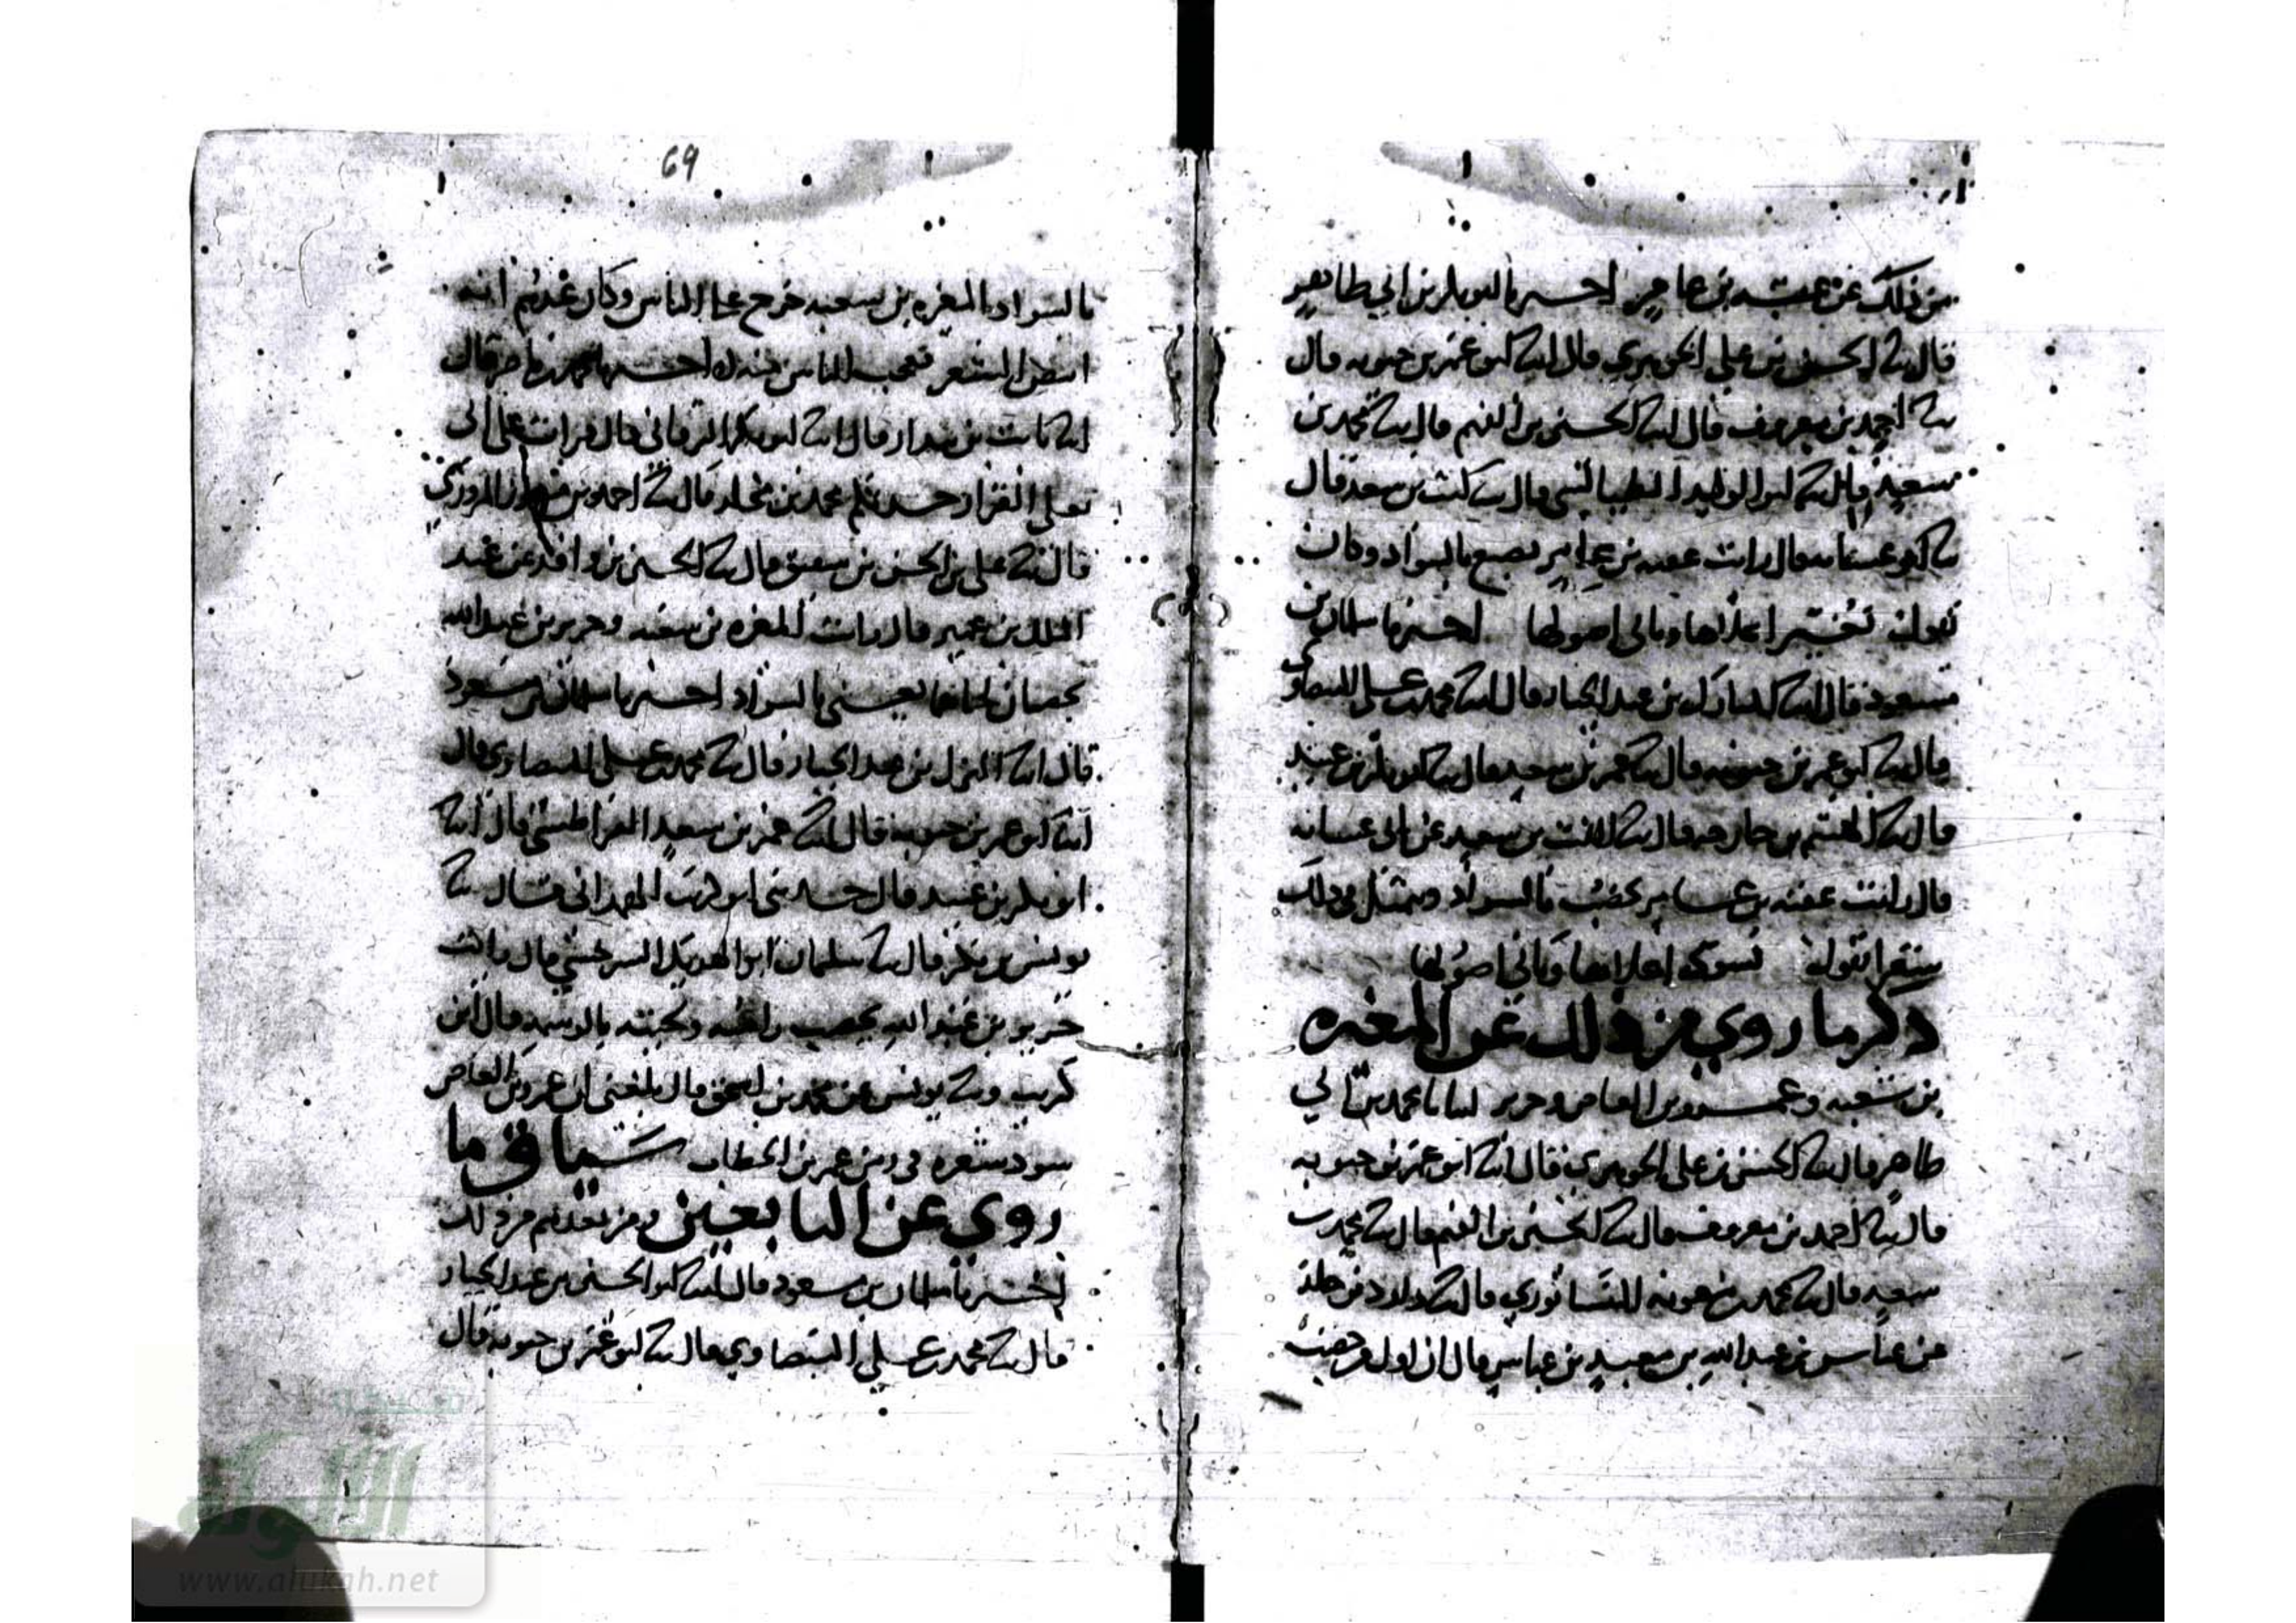 من ذلك عن عقبة بن عامر اخبرنا ابو بكر بن ابي طاهر
قال انا الحسن بن علي الجوهري قال انا ابو عمر بن حيويه قال
انا احمد بن معروف قال انا الحسين بن الفهم قال نا محمد بن
سعيد قال نا ابو الوليد الطيالسي قال نا ليث بن سعد قال
نا ابو عشانه قال رايت عقبه بن عامر يصبغ بالسواد وكان
يقول نغير اعلاها وتابى اصولها اخبرنا سلمان بن
مسعود قال انا المبارك بن عبد الجبار قال انا محمد بن علي البيضاوي
قال انا ابو عمر بن حيويه قال نا عمر بن سعيد قال نا ابو بكر بن عبيد
قال نا الهيثم بن خارجه قال نا الليث بن سعيد عن ابي عشانه
قال رايت عقبه بن عامر يخضب بالسواد ويتمثل في ذلك
شعرا يقول نسود اعلاها وتابى اصولها
ذكر ما روي من ذلك عن المغيره
بن شعبه وعمرو بن العاص وجرير انبانا محمد بن ابي
طاهر قال انا الحسن بن علي الجوهري قال انا ابو عمر بن حيويه
قال انا احمد بن معروف قال نا الحسين بن الفهم قال نا محمد بن
سعيد قال نا محمد بن معويه النيسابوري قال نا داود بن خلد
عن عباس بن عبد الله بن معبد بن عباس قال ان اول من خضب
69
بالسواد المغيره بن شعبه خرج على الناس وكان عهدهم انه
ابيض الشعر فعجب الناس منه اخبرنا محمد بن ناصر قال
انا ثابت بن بندار قال انا ابو بكر البرقاني قال قرات على ابي
يعلى الفزار حدثكم محمد بن مخلد قال نا احمد بن منصور المروزي
قال نا علي بن الحسن بن شقيق قال نا الحسين بن واقد عن عبد
الملك بن عمير قال رايت المغيره بن شعبه وجرير بن عبد الله
يخضبان لحاهما يعني بالسواد اخبرنا سلمان بن مسعود
قال انا المبارك بن عبد الجبار قال نا محمد بن علي البيضاوي قال
انا ابو عمر بن حيويه قال نا عمر بن سعيد القراطيسي قال نا
ابو بكر بن عبيد قال حدثني ابو كريب الهمداني قال نا
يونس بن بكر قال نا سلمان ابو الهذيل السرخسي قال رايت
جرير بن عبد الله يخضب راسه ولحيته بالوسمه قال ابو
كريب ونا يونس عن محمد بن اسحق قال بلغني ان عمرو بن العاص
سود شعره في زمن عمر بن الخطاب سياق ما
روي عن التابعين ومن بعدهم من ذلك
اخبرنا سلمان بن مسعود قال انا ابو الحسين بن عبد الجبار
قال نا محمد بن علي البيضاوي قال نا ابو عمر بن حيويه قال
الألوكة
www.alukah.net